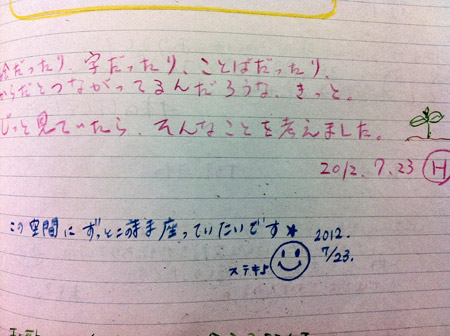 だったり、字だったり、ことばだったり、
からだとつながってるんだろうな、きっと。
じっと見ていたら、そんなことを考えました。
2012.7.23 H
この空間にずっとこのまま座っていたいです★
2012.
7/23.
ステキ♪